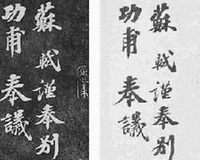 蘇軾謹奉別
功甫奉議
蘇軾謹奉別
功甫奉議